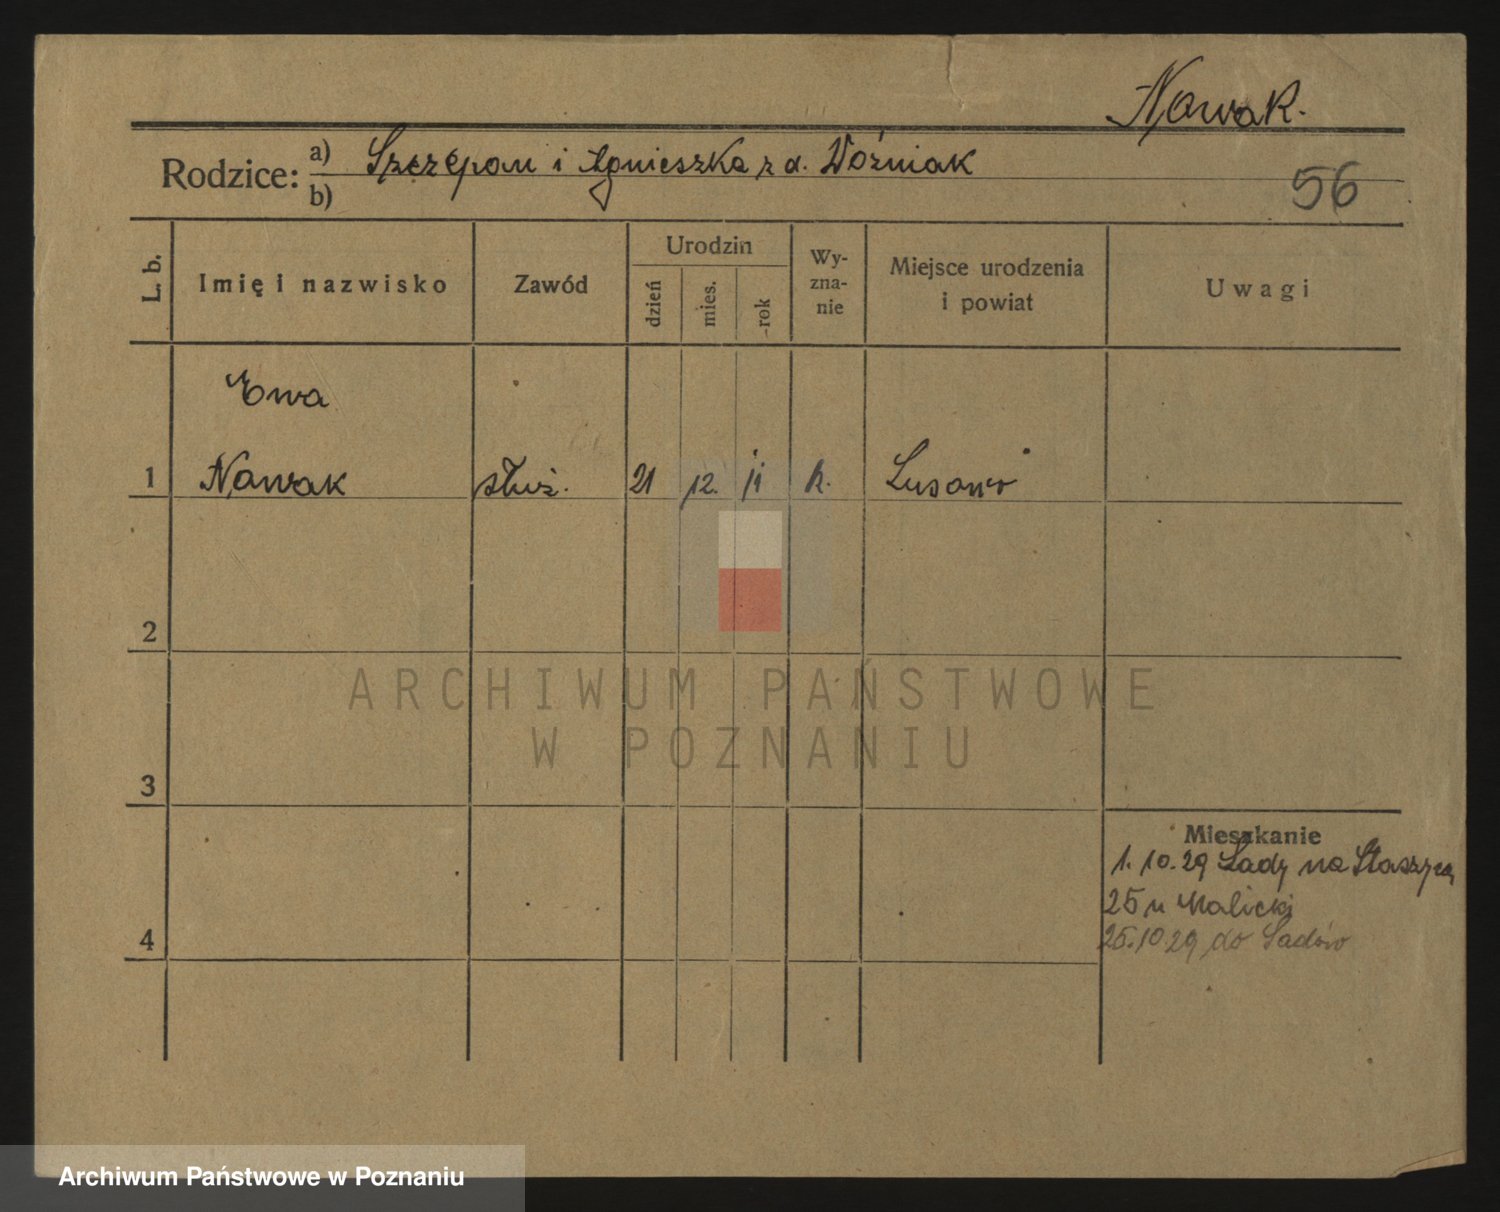 Nowak.
Rodzice: a) Szczepan i Agnieszka z d. Woźniak
b)
56
L. b.
Imię i nazwisko
Zawód
Urodzin
dzień
mies.
rok
Wy-
zna-
nie
Miejsce urodzenia
i powiat
Uwagi
Ewa
1 Nowak służ. 21 12. 11 k. Lusowo
2
3
4
Mieszkanie
1. 10. 29 Sady na Staszyca
25 u Malicki
25.10.29 do Sadów
ARCHIWUM PAŃSTWOWE
W POZNANIU
Archiwum Państwowe w Poznaniu